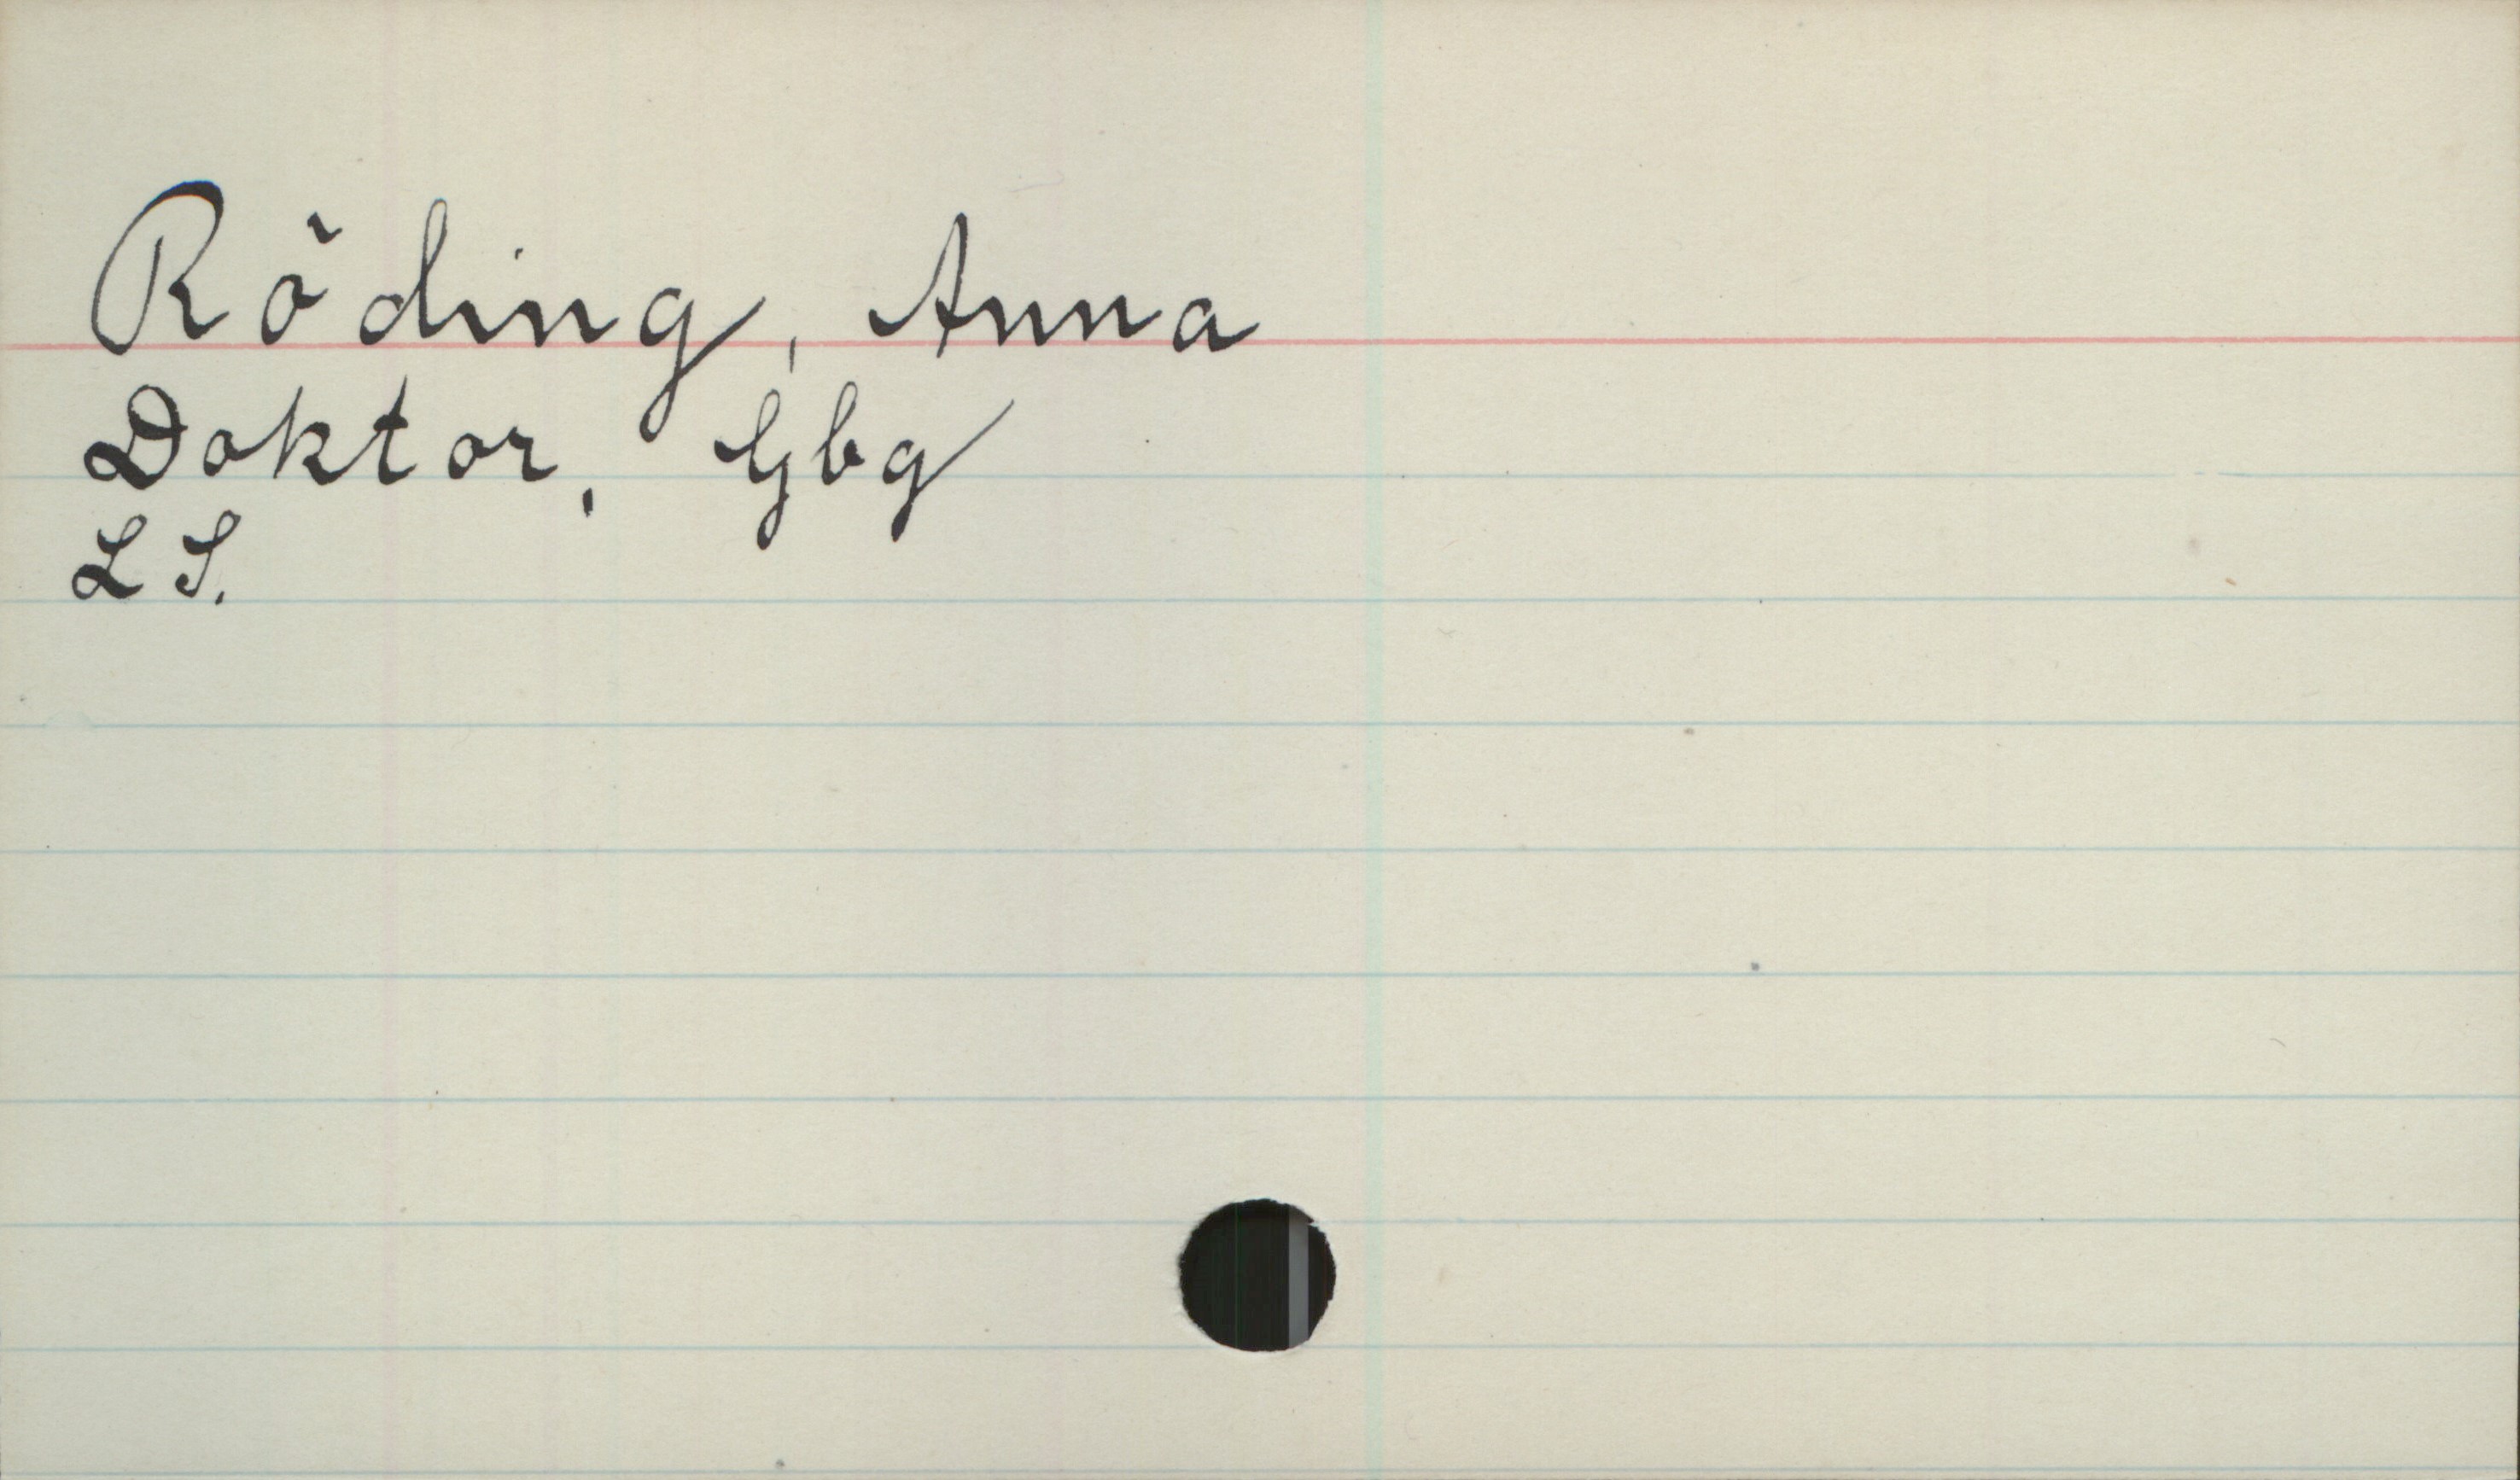 Röding, Anna
Doktor, Gbg
L S.